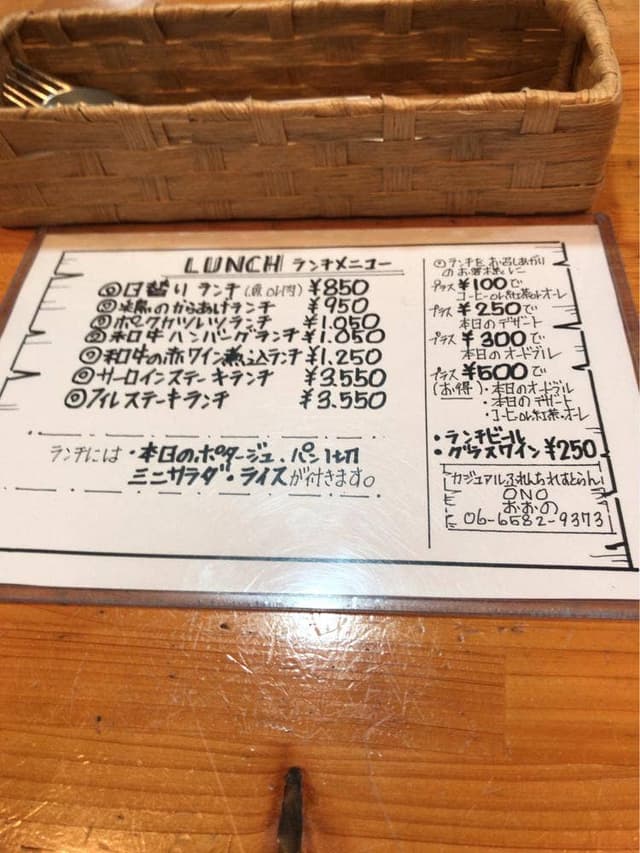 LUNCH ランチメニュー
◎日替り ランチ(魚or肉) ¥850
◎若鳥のからあげランチ ¥950
◎ポークカツレツランチ ¥1,050
◎和牛ハンバーグランチ ¥1,050
◎和牛の赤ワイン煮込ランチ ¥1,250
◎サーロインステーキランチ ¥3,550
◎フィレステーキランチ ¥3,550
ランチには・本日のポタージュ、パン1切
ミニサラダ・ライスが付きます。
◎ランチをお召しあがり
のお客様に
プラス ¥100で
コーヒーor紅茶orオーレ
プラス ¥250で
本日のデザート
プラス ¥300で
本日のオードブル
プラス ¥500で
(お得)・本日のオードブル
・本日のデザート
・コーヒーor紅茶・オーレ
・ランチビール
・グラスワイン ¥250
カジュアルふれんちれすとらん
ONO
おおの
06-6582-9373